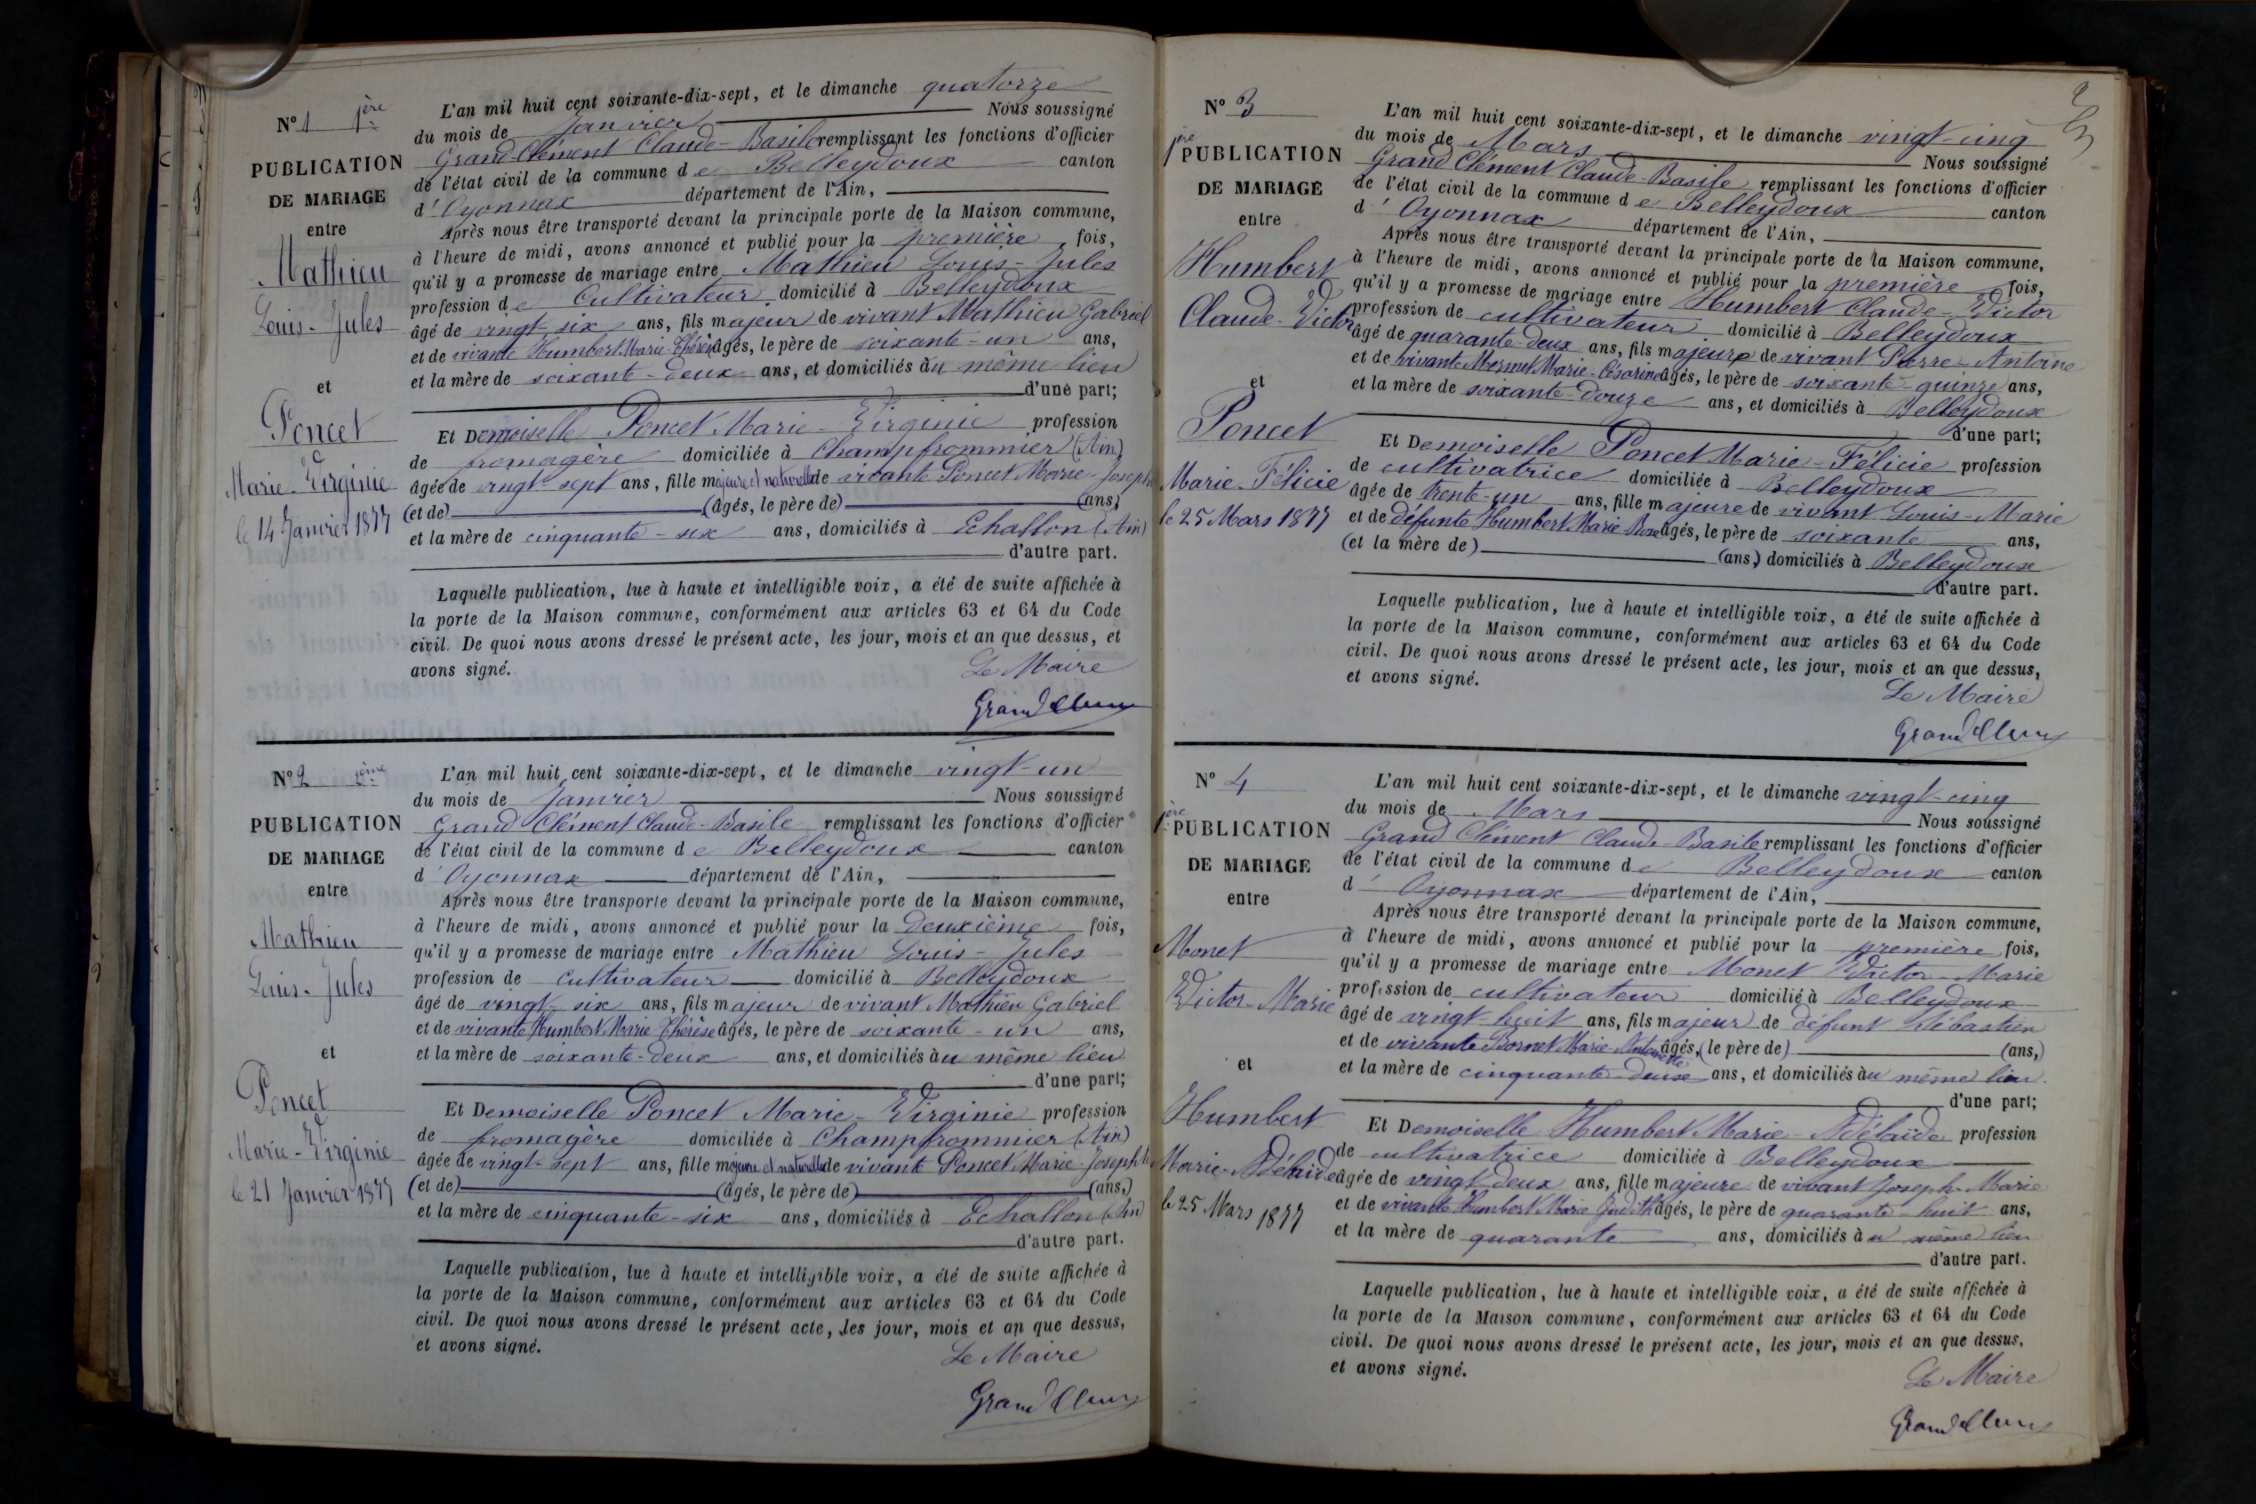 N° 1 1ère
PUBLICATION
DE MARIAGE
entre
Mathieu
Louis-Jules
et
Poncet
Marie-Virginie
le 14 Janvier 1877
L'an mil huit cent soixante-dix-sept, et le dimanche quatorze
du mois de Janvier Nous soussigné
Grand-Clément Claude-Basile remplissant les fonctions d'officier
de l'état civil de la commune de Belleydoux canton
d'Oyonnax département de l'Ain,
Après nous être transporté devant la principale porte de la Maison commune,
à l'heure de midi, avons annoncé et publié pour la première fois,
qu'il y a promesse de mariage entre Mathieu Louis-Jules
profession de Cultivateur domicilié à Belleydoux
âgé de vingt-six ans, fils majeur de vivant Mathieu Gabriel
et de vivante Humbert Marie-Thérèse âgés, le père de soixante-un ans,
et la mère de soixante-deux ans, et domiciliés au même lieu
d'une part;
Et Demoiselle Poncet Marie-Virginie profession
de fromagère domiciliée à Champfrommier (Ain)
âgée de vingt-sept ans, fille majeure et naturelle de vivante Poncet Marie-Josephte
(et de) (âgés, le père de) (ans,)
et la mère de cinquante-six ans, domiciliés à Echallon (Ain)
d'autre part.
Laquelle publication, lue à haute et intelligible voix, a été de suite affichée à
la porte de la Maison commune, conformément aux articles 63 et 64 du Code
civil. De quoi nous avons dressé le présent acte, les jour, mois et an que dessus, et
avons signé.
Le Maire
Grand Clément
N° 2 2ème
PUBLICATION
DE MARIAGE
entre
Mathieu
Louis-Jules
et
Poncet
Marie-Virginie
le 21 Janvier 1877
L'an mil huit cent soixante-dix-sept, et le dimanche vingt-un
du mois de Janvier Nous soussigné
Grand Clément Claude-Basile remplissant les fonctions d'officier
de l'état civil de la commune de Belleydoux canton
d'Oyonnax département de l'Ain,
Après nous être transporté devant la principale porte de la Maison commune,
à l'heure de midi, avons annoncé et publié pour la deuxième fois,
qu'il y a promesse de mariage entre Mathieu Louis-Jules
profession de cultivateur domicilié à Belleydoux
âgé de vingt-six ans, fils majeur de vivant Mathieu Gabriel
et de vivante Humbert Marie Thérèse âgés, le père de soixante-un ans,
et la mère de soixante-deux ans, et domiciliés au même lieu
d'une part;
Et Demoiselle Poncet Marie-Virginie profession
de fromagère domiciliée à Champfrommier (Ain)
âgée de vingt-sept ans, fille majeure et naturelle de vivante Poncet Marie-Josephte
(et de) (âgés, le père de) (ans,)
et la mère de cinquante-six ans, domiciliés à Echallon (Ain)
d'autre part.
Laquelle publication, lue à haute et intelligible voix, a été de suite affichée à
la porte de la Maison commune, conformément aux articles 63 et 64 du Code
civil. De quoi nous avons dressé le présent acte, les jour, mois et an que dessus,
et avons signé.
Le Maire
Grand Clément
N° 3
1ère PUBLICATION
DE MARIAGE
entre
Humbert
Claude-Victor
et
Poncet
Marie-Félicie
le 25 Mars 1877
L'an mil huit cent soixante-dix-sept, et le dimanche vingt-cinq
du mois de Mars Nous soussigné
Grand Clément Claude-Basile remplissant les fonctions d'officier
de l'état civil de la commune de Belleydoux canton
d'Oyonnax département de l'Ain,
Après nous être transporté devant la principale porte de la Maison commune,
à l'heure de midi, avons annoncé et publié pour la première fois,
qu'il y a promesse de mariage entre Humbert Claude-Victor
profession de cultivateur domicilié à Belleydoux
âgé de quarante-deux ans, fils majeur de vivant Pierre-Antoine
et de vivante Mermet Marie-Césarine âgés, le père de soixante-quinze ans,
et la mère de soixante-douze ans, et domiciliés à Belleydoux
d'une part;
Et Demoiselle Poncet Marie-Félicie profession
de cultivatrice domiciliée à Belleydoux
âgée de trente-un ans, fille majeure de vivant Louis-Marie
et de défunte Humbert Marie-Rose âgés, le père de soixante ans,
(et la mère de) (ans,) domiciliés à Belleydoux
d'autre part.
Laquelle publication, lue à haute et intelligible voix, a été de suite affichée à
la porte de la Maison commune, conformément aux articles 63 et 64 du Code
civil. De quoi nous avons dressé le présent acte, les jour, mois et an que dessus,
et avons signé.
Le Maire
Grand Clément
N° 4
1ère PUBLICATION
DE MARIAGE
entre
Monet
Victor-Marie
et
Humbert
Marie-Adélaïde
le 25 Mars 1877
L'an mil huit cent soixante-dix-sept, et le dimanche vingt-cinq
du mois de Mars Nous soussigné
Grand Clément Claude-Basile remplissant les fonctions d'officier
de l'état civil de la commune de Belleydoux canton
d'Oyonnax département de l'Ain,
Après nous être transporté devant la principale porte de la Maison commune,
à l'heure de midi, avons annoncé et publié pour la première fois,
qu'il y a promesse de mariage entre Monet Victor-Marie
profession de cultivateur domicilié à Belleydoux
âgé de vingt-huit ans, fils majeur de défunt Sébastien
et de vivante Bornet Marie-Antoinette âgés, (le père de) (ans,)
et la mère de cinquante-deux ans, et domiciliés au même lieu
d'une part;
Et Demoiselle Humbert Marie-Adélaïde profession
de cultivatrice domiciliée à Belleydoux
âgée de vingt-deux ans, fille majeure de vivant Joseph-Marie
et de vivante Humbert Marie Judith âgés, le père de quarante-huit ans,
et la mère de quarante ans, domiciliés au même lieu
d'autre part.
Laquelle publication, lue à haute et intelligible voix, a été de suite affichée à
la porte de la Maison commune, conformément aux articles 63 et 64 du Code
civil. De quoi nous avons dressé le présent acte, les jour, mois et an que dessus,
et avons signé.
Le Maire
Grand Clément